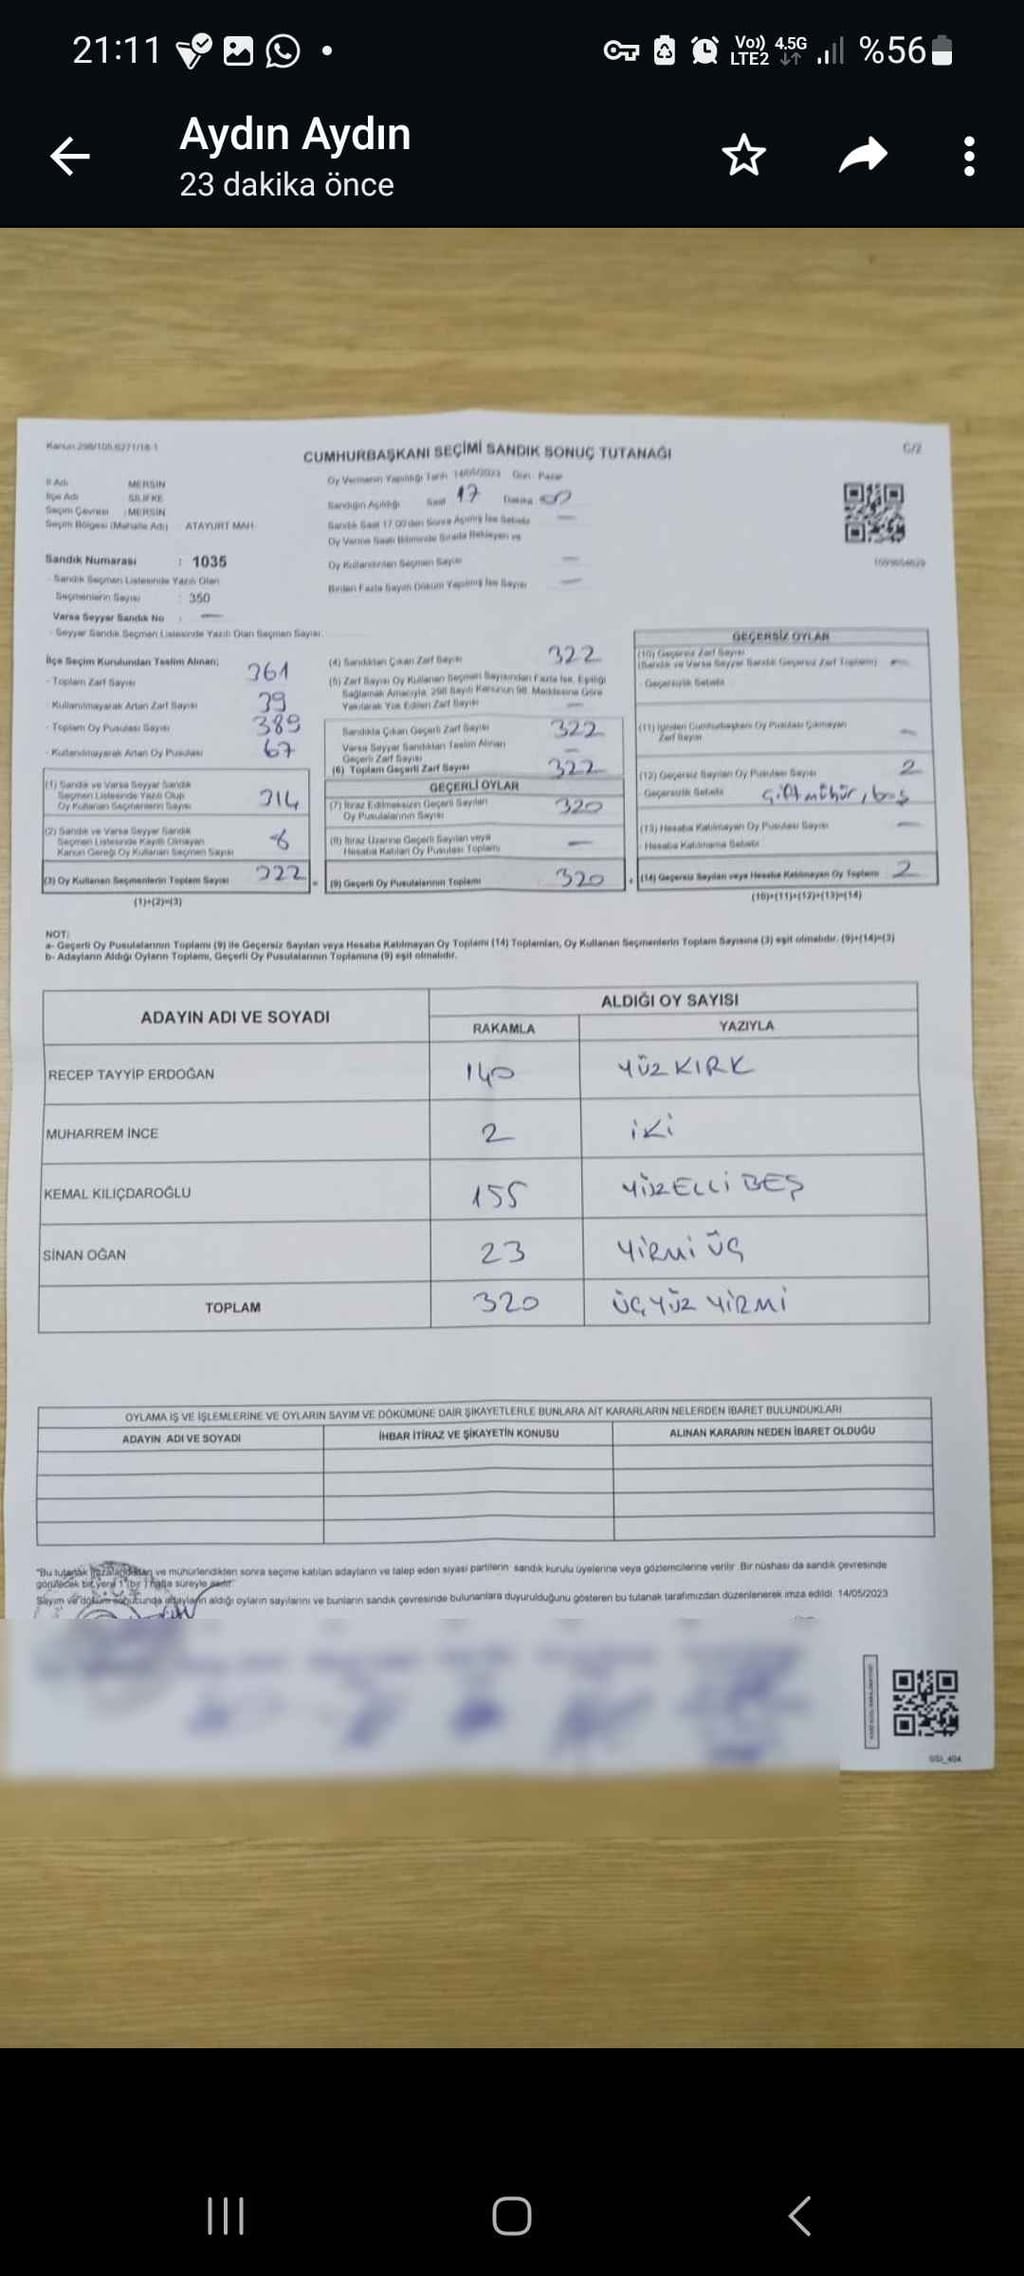 21:11
Vo)) 4.5G
LTE2
%56
Aydın Aydın
23 dakika önce
Kanun 298/105 6271/18-1
C/2
CUMHURBAŞKANI SEÇİMİ SANDIK SONUÇ TUTANAĞI
İl Adı MERSİN
İlçe Adı SİLİFKE
Seçim Çevresi :MERSİN
Seçim Bölgesi (Mahalle Adı) ATAYURT MAH.
Oy Vermenin Yapıldığı Tarih 14/05/2023 Gün Pazar
Sandığın Açıldığı Saat 17 Dakika
Sandık Saat 17.00'den Sonra Açılmış İse Sebebi —
Oy Verme Saati Bitiminde Sırada Bekleyen ve
Oy Kullandırılan Seçmen Sayısı —
Birden Fazla Sayım Döküm Yapılmış İse Sayısı —
Sandık Numarası : 1035
Sandık Seçmen Listesinde Yazılı Olan
Seçmenlerin Sayısı : 350
Varsa Seyyar Sandık No : —
- Seyyar Sandık Seçmen Listesinde Yazılı Olan Seçmen Sayısı:
İlçe Seçim Kurulundan Teslim Alınan;
- Toplam Zarf Sayısı 361
- Kullanılmayarak Artan Zarf Sayısı 39
- Toplam Oy Pusulası Sayısı 389
- Kullanılmayarak Artan Oy Pusulası 67
(1) Sandık ve Varsa Seyyar Sandık
Seçmen Listesinde Yazılı Olup
Oy Kullanan Seçmenlerin Sayısı 314
(2) Sandık ve Varsa Seyyar Sandık
Seçmen Listesinde Kayıtlı Olmayan
Kanun Gereği Oy Kullanan Seçmen Sayısı 8
(3) Oy Kullanan Seçmenlerin Toplam Sayısı 322
(1)+(2)=(3)
(4) Sandıktan Çıkan Zarf Sayısı 322
(5) Zarf Sayısı Oy Kullanan Seçmen Sayısından Fazla İse, Eşitliği
Sağlamak Amacıyla, 298 Sayılı Kanunun 98. Maddesine Göre
Yakılarak Yok Edilen Zarf Sayısı —
Sandıkta Çıkan Geçerli Zarf Sayısı 322
Varsa Seyyar Sandıktan Teslim Alınan
Geçerli Zarf Sayısı —
(6) Toplam Geçerli Zarf Sayısı 322
GEÇERLİ OYLAR
(7) İtiraz Edilmeksizin Geçerli Sayılan
Oy Pusulalarının Sayısı 320
(8) İtiraz Üzerine Geçerli Sayılan veya
Hesaba Katılan Oy Pusulası Toplamı —
(9) Geçerli Oy Pusulalarının Toplamı 320
GEÇERSİZ OYLAR
(10) Geçersiz Zarf Sayısı
(Sandık ve Varsa Seyyar Sandık Geçersiz Zarf Toplamı) —
- Geçersizlik Sebebi
(11) İçinden Cumhurbaşkanı Oy Pusulası Çıkmayan
Zarf Sayısı —
(12) Geçersiz Sayılan Oy Pusulası Sayısı 2
- Geçersizlik Sebebi Çift mühür, boş
(13) Hesaba Katılmayan Oy Pusulası Sayısı —
- Hesaba Katılmama Sebebi
(14) Geçersiz Sayılan veya Hesaba Katılmayan Oy Toplamı 2
(10)+(11)+(12)+(13)=(14)
NOT:
a- Geçerli Oy Pusulalarının Toplamı (9) ile Geçersiz Sayılan veya Hesaba Katılmayan Oy Toplamı (14) Toplamları, Oy Kullanan Seçmenlerin Toplam Sayısına (3) eşit olmalıdır. (9)+(14)=(3)
b- Adayların Aldığı Oyların Toplamı, Geçerli Oy Pusulalarının Toplamına (9) eşit olmalıdır.
ADAYIN ADI VE SOYADI
ALDIĞI OY SAYISI
RAKAMLA YAZIYLA
RECEP TAYYİP ERDOĞAN 140 YÜZ KIRK
MUHARREM İNCE 2 İKİ
KEMAL KILIÇDAROĞLU 155 YÜZELLİ BEŞ
SİNAN OĞAN 23 YİRMİ ÜÇ
TOPLAM 320 ÜÇYÜZ YİRMİ
OYLAMA İŞ VE İŞLEMLERİNE VE OYLARIN SAYIM VE DÖKÜMÜNE DAİR ŞİKAYETLERLE BUNLARA AİT KARARLARIN NELERDEN İBARET BULUNDUKLARI
ADAYIN ADI VE SOYADI İHBAR İTİRAZ VE ŞİKAYETİN KONUSU ALINAN KARARIN NEDEN İBARET OLDUĞU
"Bu tutanak imzalandıktan ve mühürlendikten sonra seçime katılan adayların ve talep eden siyasi partilerin sandık kurulu üyelerine veya gözlemcilerine verilir. Bir nüshası da sandık çevresinde
görülecek bir yere 1 (bir) hafta süreyle asılır"
Sayım ve döküm sonucunda adayların aldığı oyların sayılarını ve bunların sandık çevresinde bulunanlara duyurulduğunu gösteren bu tutanak tarafımızdan düzenlenerek imza edildi. 14/05/2023